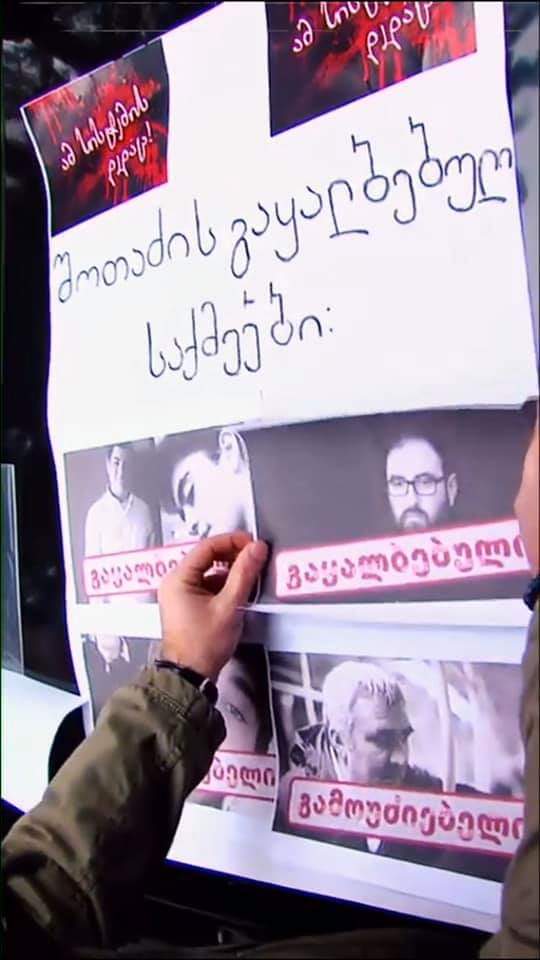 ამ სისტემის
დედაც!
ამ სისტემ
დედაც
შოთაძის გაყალბებულ
საქმეები:
გაყალბე
გაყალბებული
ებელი
გამოუძიებელი